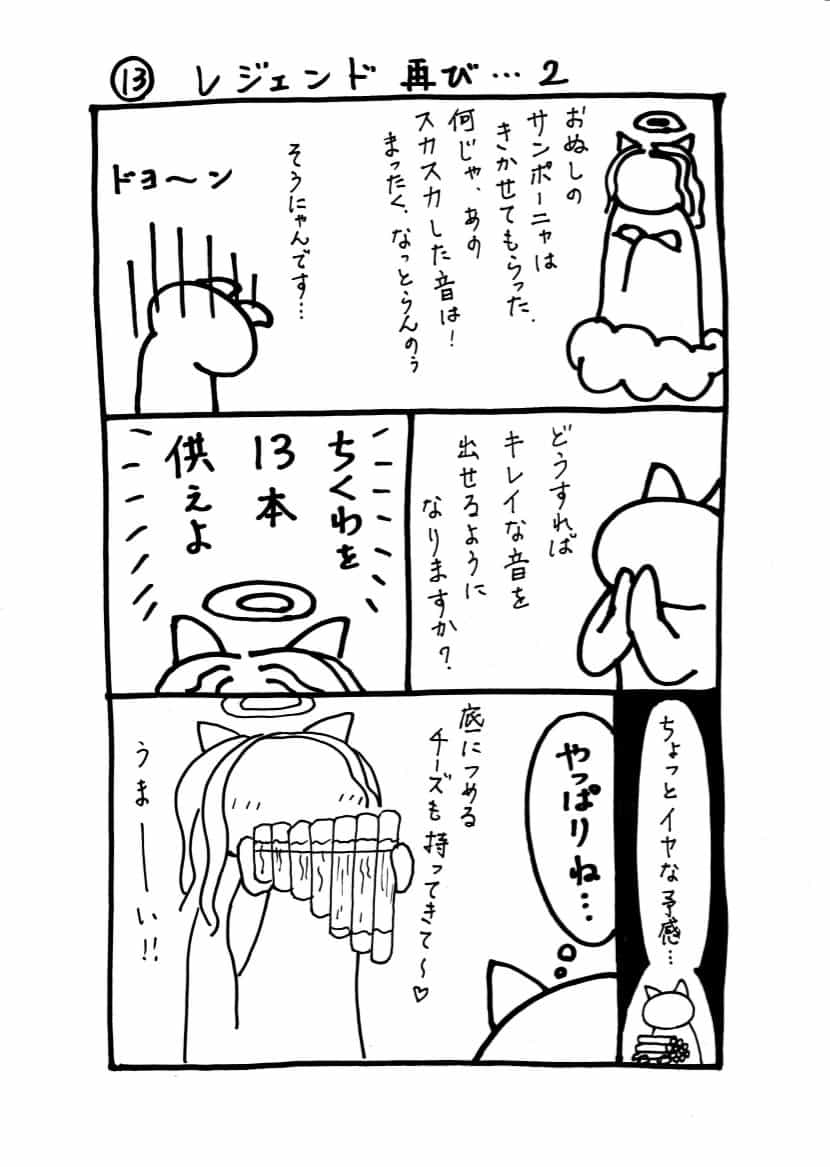 ⑬ レジェンド 再び…2
おぬしの
サンポーニャは
きかせてもらった.
何じゃ、あの
スカスカした音は!
まったく、なっとらんのぅ
そうにゃんです…
ドヨ〜ン
どうすれば
キレイな音を
出せるように
なりますか?
ちくわを
13本
供えよ
ちょっとイヤな予感…
やっぱりね…
底につめる
チーズも持ってきて〜♡
うまーい!!